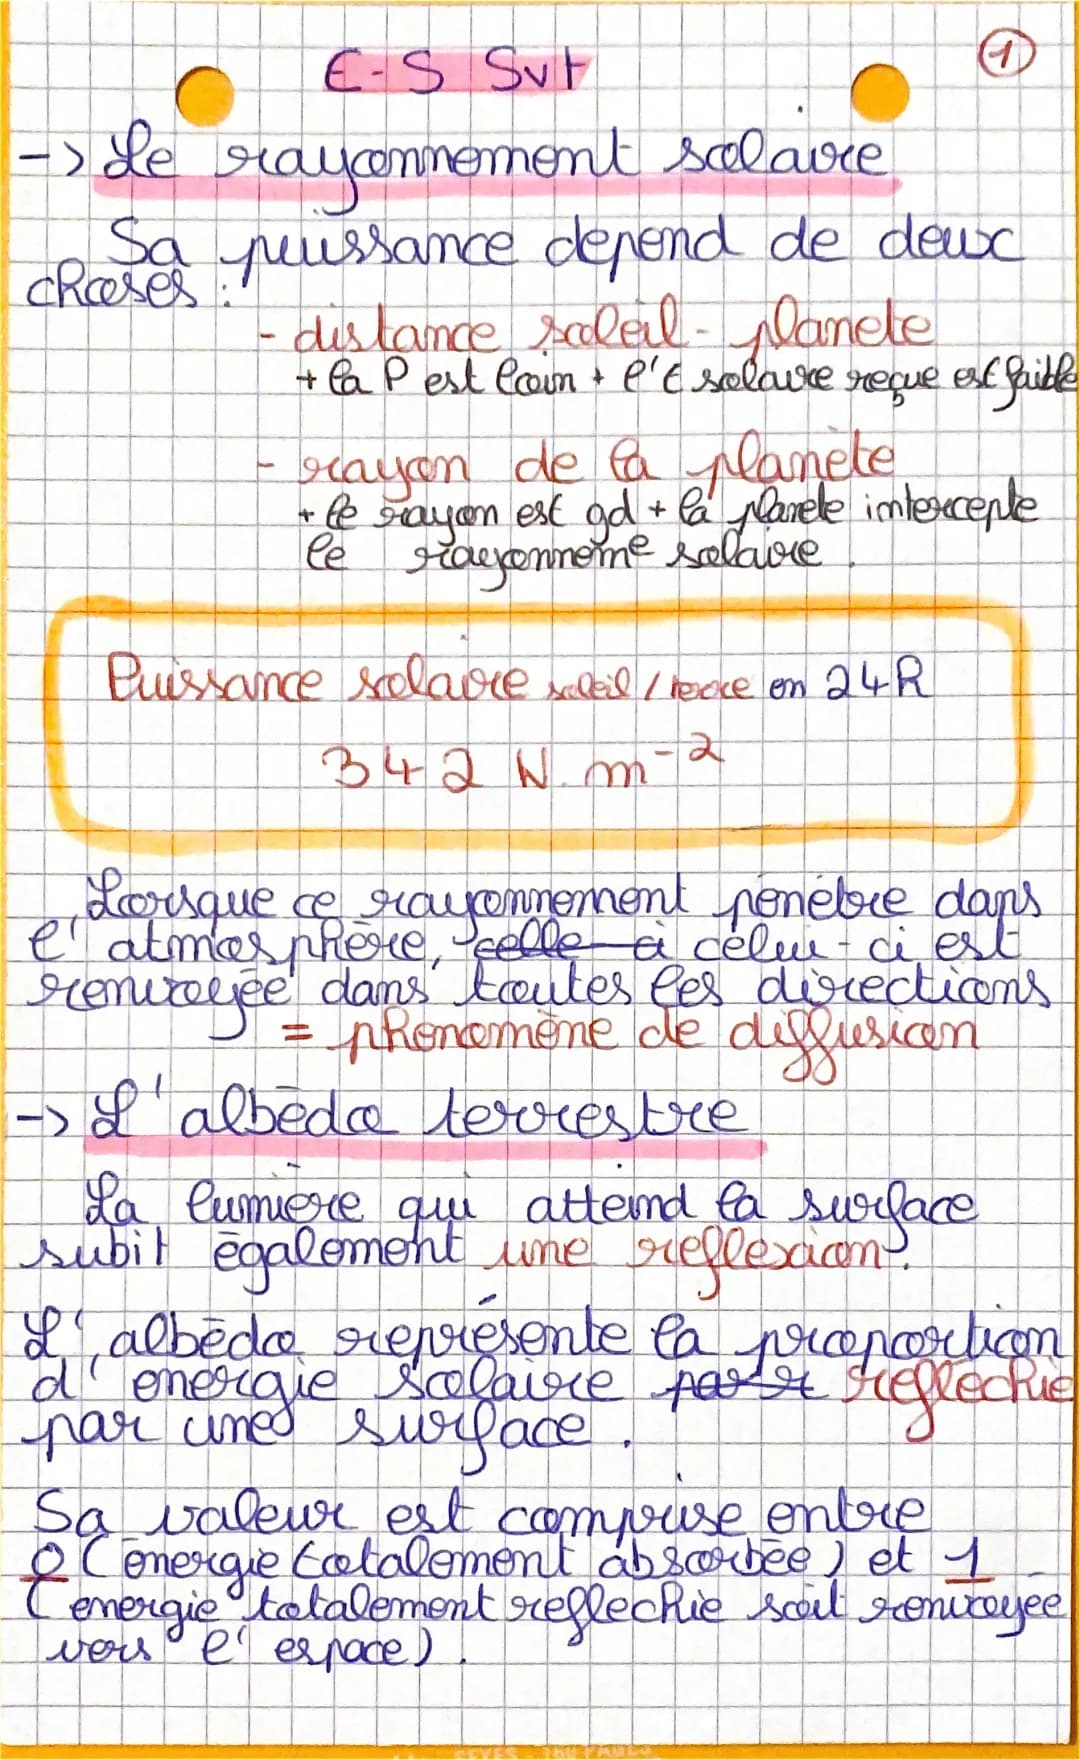 E-S Svt
1
-> Le rayonnement solaire
Sa puissance depend de deux
choses :
- distance soleil - planete
+ la P est loin + l'E solaire reçue est faible
- rayon de la planète
+ le rayon est gd + la planete intercepte
le rayonneme solaire.
Puissance solaire soleil / terre en 24h
342 W.m-2
Lorsque ce rayonnement penètre dans
l'atmosphère, celle ci celui-ci est
renvoyée dans toutes les directions
= phenomène de diffusion
-> L'albédo terrestre
La lumière qui atteind la surface
subit également une reflexion.
L'albédo représente la proportion
d'energie solaire reflechie
par une surface.
Sa valeur est comprise entre
0 (énergie totalement absorbée) et 1
(energie totalement reflechie soit renvoyée
vers l'espace).